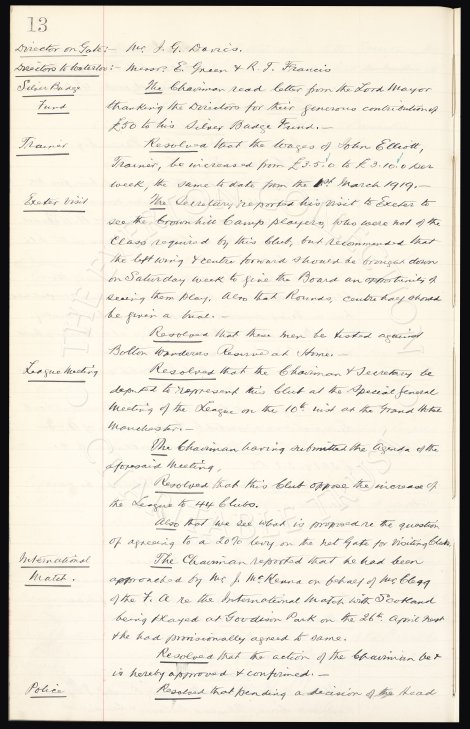 13
Director on Gate:- Mr. J. G. Davies.
Directors to Waterloo:- Messrs E. Green & R. T. Francis
Silver Badge Fund The Chairman read letter from the Lord Mayor
thanking the Directors for their generous contribution of
£50 to his Silver Badge Fund.-
Trainer Resolved that the wages of John Elliott,
Trainer, be increased from £3.5.0 to £3.10.0 per
week, the same to date from the 1st March 1919.-
Exeter Visit The Secretary reported his visit to Exeter to
see the Crownhill Camp players, who were not of the
Class required by this Club, but recommended that
the left wing & centre forward should be brought down
on Saturday week to give the Board an opportunity of
seeing them play. Also that Rounds, centre half should
be given a trial.-
Resolved that these men be tested against
Bolton Wanderers Reserve at Home.-
League Meeting Resolved that the Chairman & Secretary be
deputed to represent this Club at the Special General
Meeting of the League on the 10th inst at the Grand Hotel
Manchester.-
The Chairman having submitted the Agenda of the
aforesaid Meeting,
Resolved that this Club oppose the increase of
the League to 44 Clubs.
Also that we see what is proposed re the question
of agreeing to a 20% levy on the net Gate for Visiting Clubs.
International Match. The Chairman reported that he had been
approached by Mr J. McKenna on behalf of Mr Clegg
of the F. A re the International Match with Scotland
being played at Goodison Park on the 26th April next
& he had provisionally agreed to same.
Resolved that the action of the Chairman be &
is hereby approved & confirmed.-
Police Resolved that pending a decision of the Head